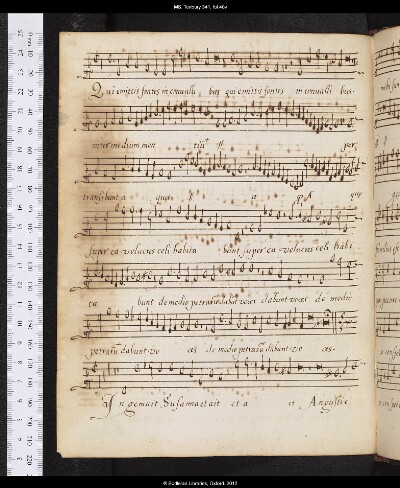 MS. Tenbury 341, fol.40v
Qui emittis fontes in convalli bus qui emittis fontes in convalli bus
inter medium mon tiu ij per
transibunt a quae ij a
super ea volucres celi habita bunt super ea volucres celi habi
ta bunt de medio petrarũ dabunt voces dabunt voces de medio
petrarũ dabunt vo ces de medio petrarũ dabunt vo ces.
In gemuit Susanna et ait et a it Angustie
© Bodleian Libraries, Oxford, 2012